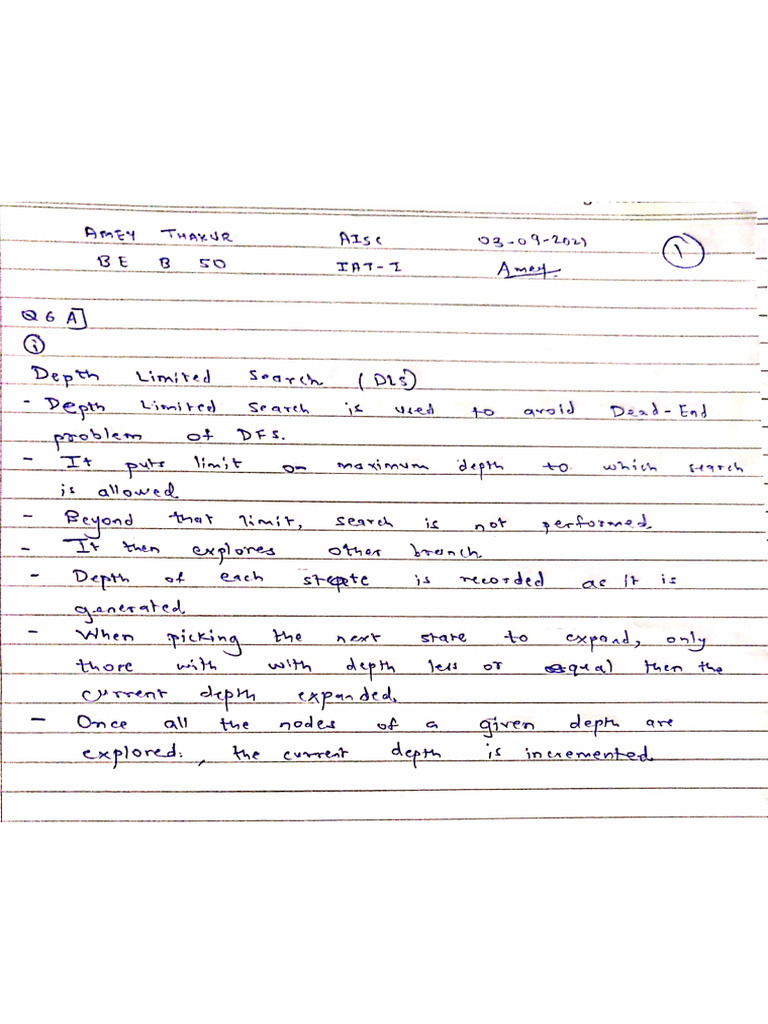 AMEY THAKUR AISC 03-09-2021 1
BE B 50 IAT-I Amey
Q6 A]
i
Depth Limited Search (DLS)
- Depth Limited Search is used to avoid Dead-End
problem of DFS.
- It puts limit on maximum depth to which search
is allowed.
- Beyond that limit, search is not performed.
- It then explores other branch.
- Depth of each state is recorded as it is
generated.
- When picking the next state to expand, only
those with with depth less or equal then the
current depth expanded.
- Once all the nodes of a given depth are
explored, the current depth is incremented